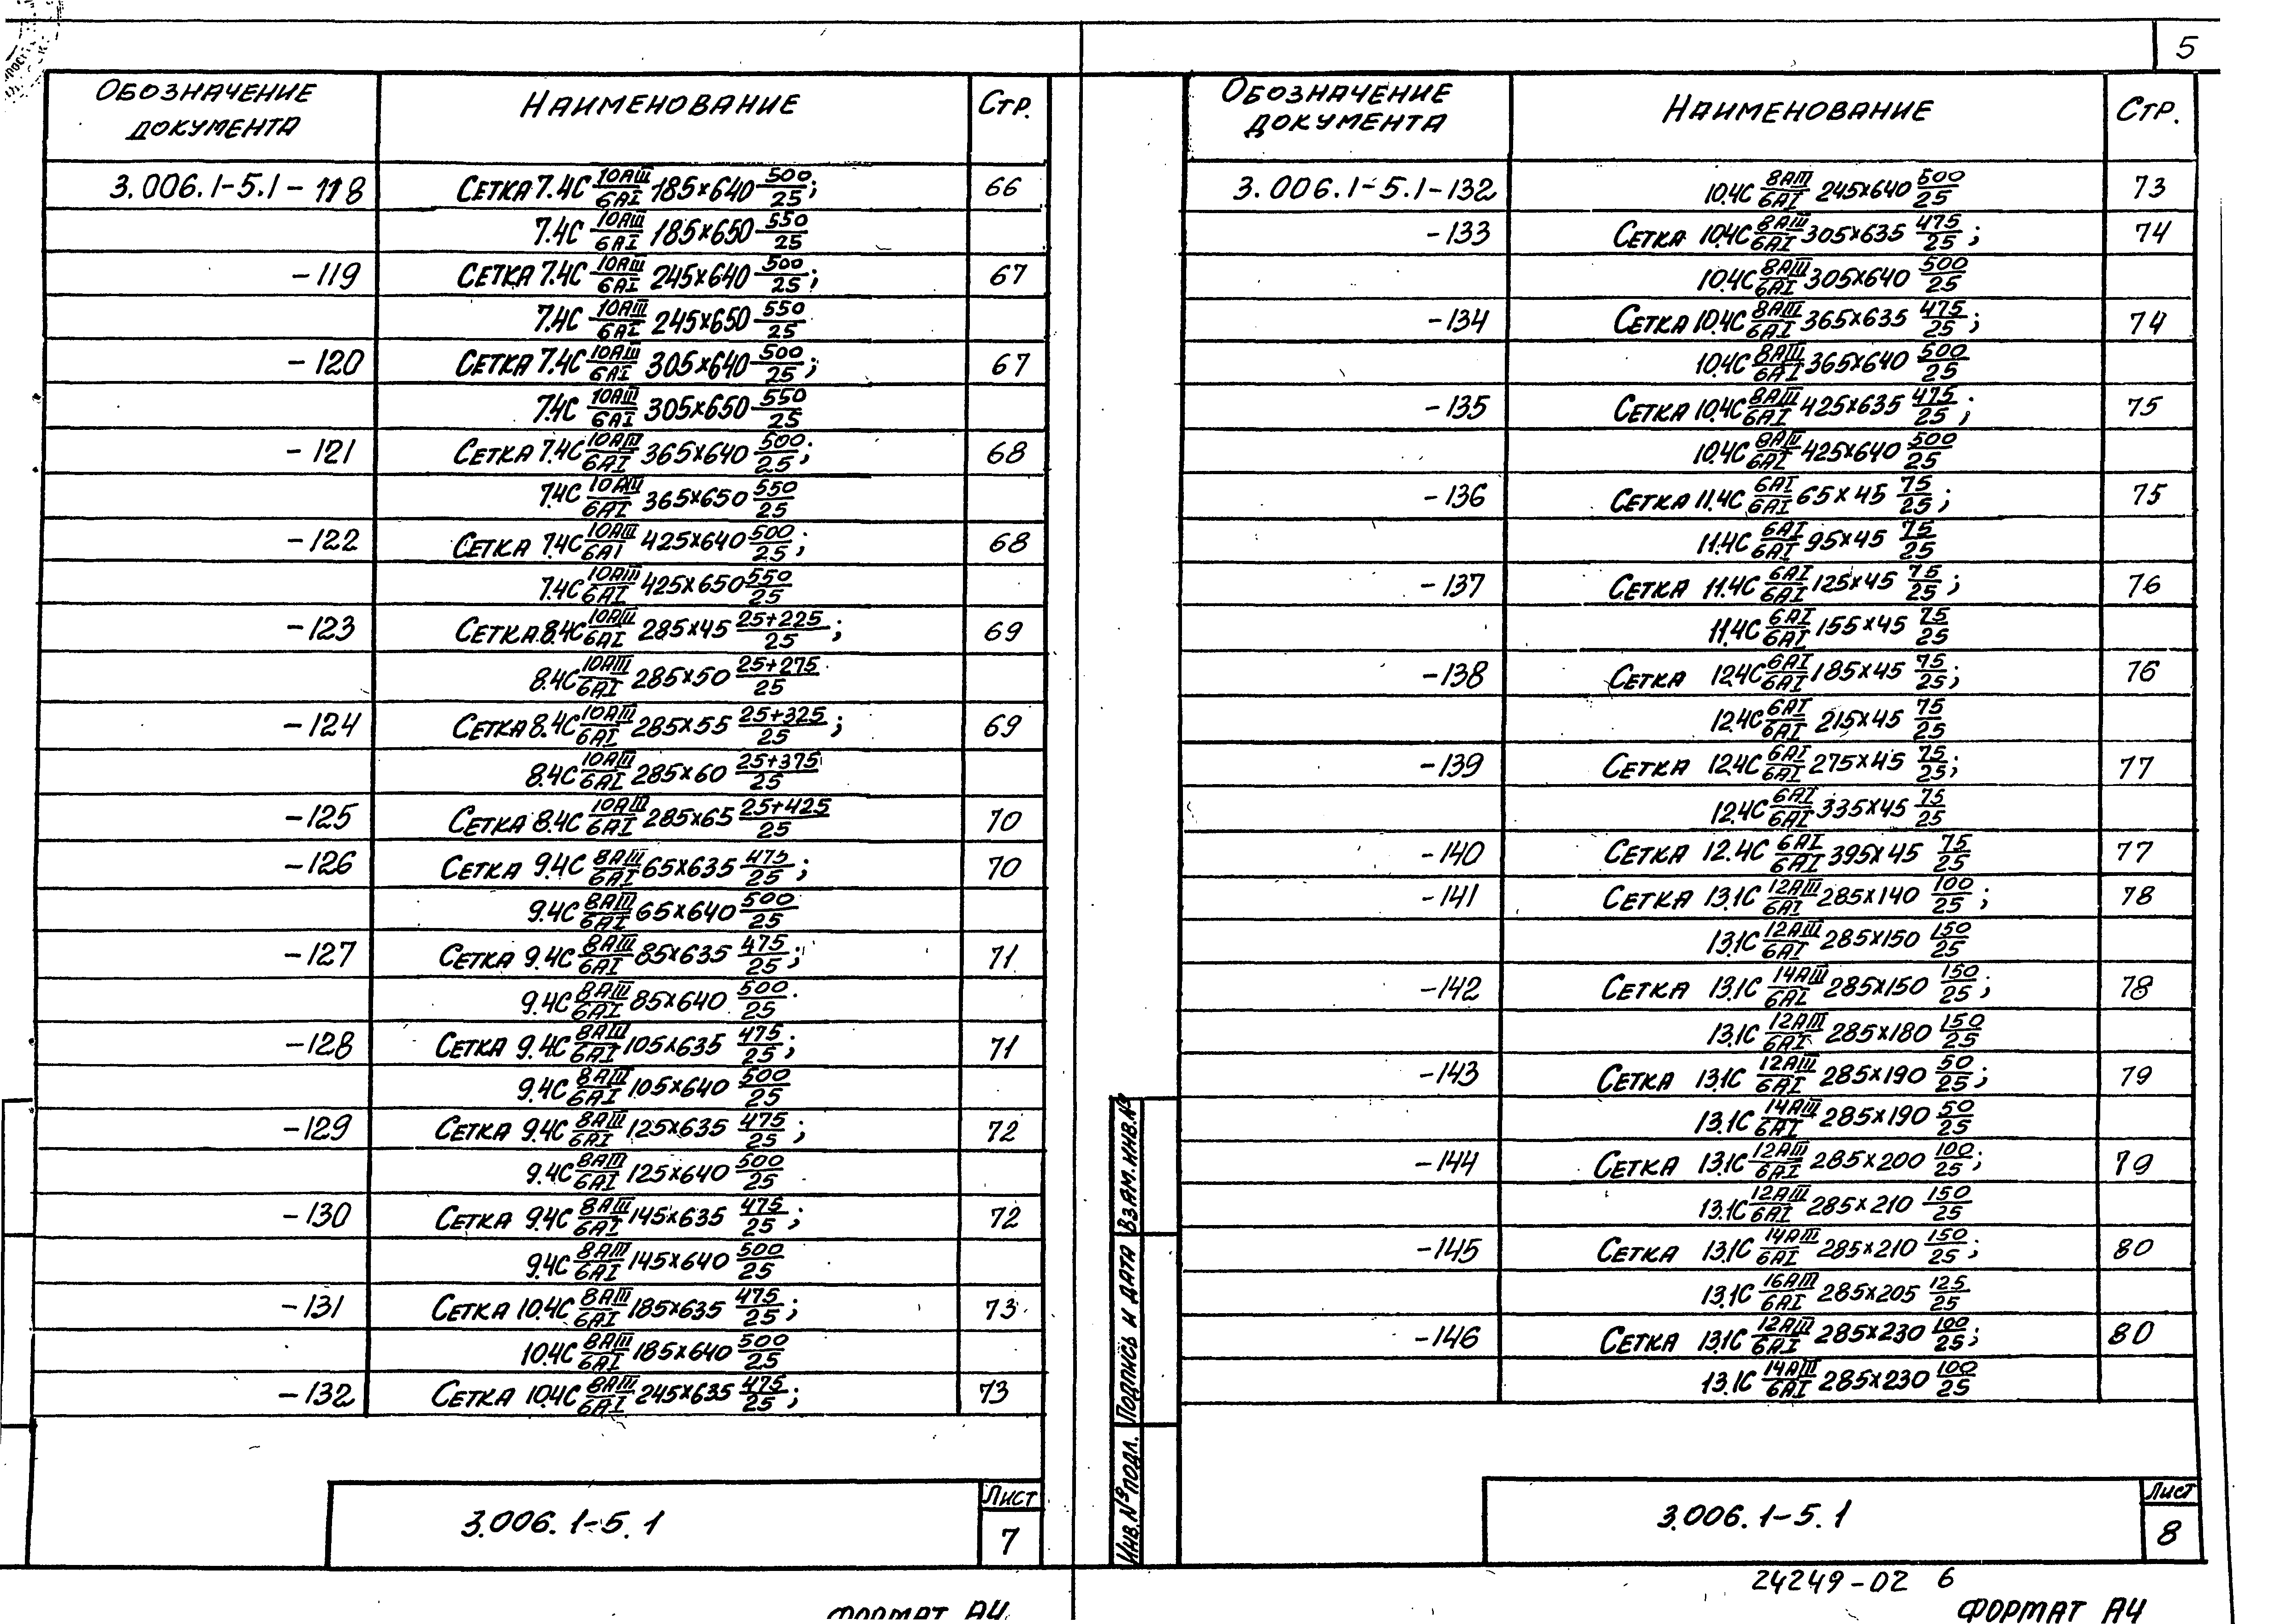 5
ОБОЗНАЧЕНИЕ ДОКУМЕНТА НАИМЕНОВАНИЕ СТР.
3.006.1-5.1-118 СЕТКА 7.4С 10АIII/6АI 185×640 500/25; 66
7.4С 10АIII/6АI 185×650 550/25
-119 СЕТКА 7.4С 10АIII/6АI 245×640 500/25; 67
7.4С 10АIII/6АI 245×650 550/25
-120 СЕТКА 7.4С 10АIII/6АI 305×640 500/25; 67
7.4С 10АIII/6АI 305×650 550/25
-121 СЕТКА 7.4С 10АIII/6АI 365×640 500/25; 68
7.4С 10АIII/6АI 365×650 550/25
-122 СЕТКА 7.4С 10АIII/6АI 425×640 500/25; 68
7.4С 10АIII/6АI 425×650 550/25
-123 СЕТКА 8.4С 10АIII/6АI 285×45 25+225/25; 69
8.4С 10АIII/6АI 285×50 25+275/25
-124 СЕТКА 8.4С 10АIII/6АI 285×55 25+325/25; 69
8.4С 10АIII/6АI 285×60 25+375/25
-125 СЕТКА 8.4С 10АIII/6АI 285×65 25+425/25 70
-126 СЕТКА 9.4С 8АIII/6АI 65×635 475/25; 70
9.4С 8АIII/6АI 65×640 500/25
-127 СЕТКА 9.4С 8АIII/6АI 85×635 475/25; 71
9.4С 8АIII/6АI 85×640 500/25
-128 СЕТКА 9.4С 8АIII/6АI 105×635 475/25; 71
9.4С 8АIII/6АI 105×640 500/25
-129 СЕТКА 9.4С 8АIII/6АI 125×635 475/25; 72
9.4С 8АIII/6АI 125×640 500/25
-130 СЕТКА 9.4С 8АIII/6АI 145×635 475/25; 72
9.4С 8АIII/6АI 145×640 500/25
-131 СЕТКА 10.4С 8АIII/6АI 185×635 475/25; 73
10.4С 8АIII/6АI 185×640 500/25
-132 СЕТКА 10.4С 8АIII/6АI 245×635 475/25; 73
3.006.1-5.1 ЛИСТ 7
ФОРМАТ А4
ОБОЗНАЧЕНИЕ ДОКУМЕНТА НАИМЕНОВАНИЕ СТР.
3.006.1-5.1-132 10.4С 8АIII/6АI 245×640 500/25 73
-133 СЕТКА 10.4С 8АIII/6АI 305×635 475/25; 74
10.4С 8АIII/6АI 305×640 500/25
-134 СЕТКА 10.4С 8АIII/6АI 365×635 475/25; 74
10.4С 8АIII/6АI 365×640 500/25
-135 СЕТКА 10.4С 8АIII/6АI 425×635 475/25; 75
10.4С 8АIII/6АI 425×640 500/25
-136 СЕТКА 11.4С 6АI/6АI 65×45 75/25; 75
11.4С 6АI/6АI 95×45 75/25
-137 СЕТКА 11.4С 6АI/6АI 125×45 75/25; 76
11.4С 6АI/6АI 155×45 75/25
-138 СЕТКА 12.4С 6АI/6АI 185×45 75/25; 76
12.4С 6АI/6АI 215×45 75/25
-139 СЕТКА 12.4С 6АI/6АI 275×45 75/25; 77
12.4С 6АI/6АI 335×45 75/25
-140 СЕТКА 12.4С 6АI/6АI 395×45 75/25 77
-141 СЕТКА 13.1С 12АIII/6АI 285×140 100/25; 78
13.1С 12АIII/6АI 285×150 150/25
-142 СЕТКА 13.1С 14АIII/6АI 285×150 150/25; 78
13.1С 12АIII/6АI 285×180 150/25
-143 СЕТКА 13.1С 12АIII/6АI 285×190 50/25; 79
13.1С 14АIII/6АI 285×190 50/25
-144 СЕТКА 13.1С 12АIII/6АI 285×200 100/25; 79
13.1С 12АIII/6АI 285×210 150/25
-145 СЕТКА 13.1С 14АIII/6АI 285×210 150/25; 80
13.1С 16АIII/6АI 285×205 125/25
-146 СЕТКА 13.1С 12АIII/6АI 285×230 100/25; 80
13.1С 14АIII/6АI 285×230 100/25
ИНВ.№ ПОДЛ. ПОДПИСЬ И ДАТА ВЗАМ.ИНВ.№
3.006.1-5.1 ЛИСТ 8
24249-02 6
ФОРМАТ А4